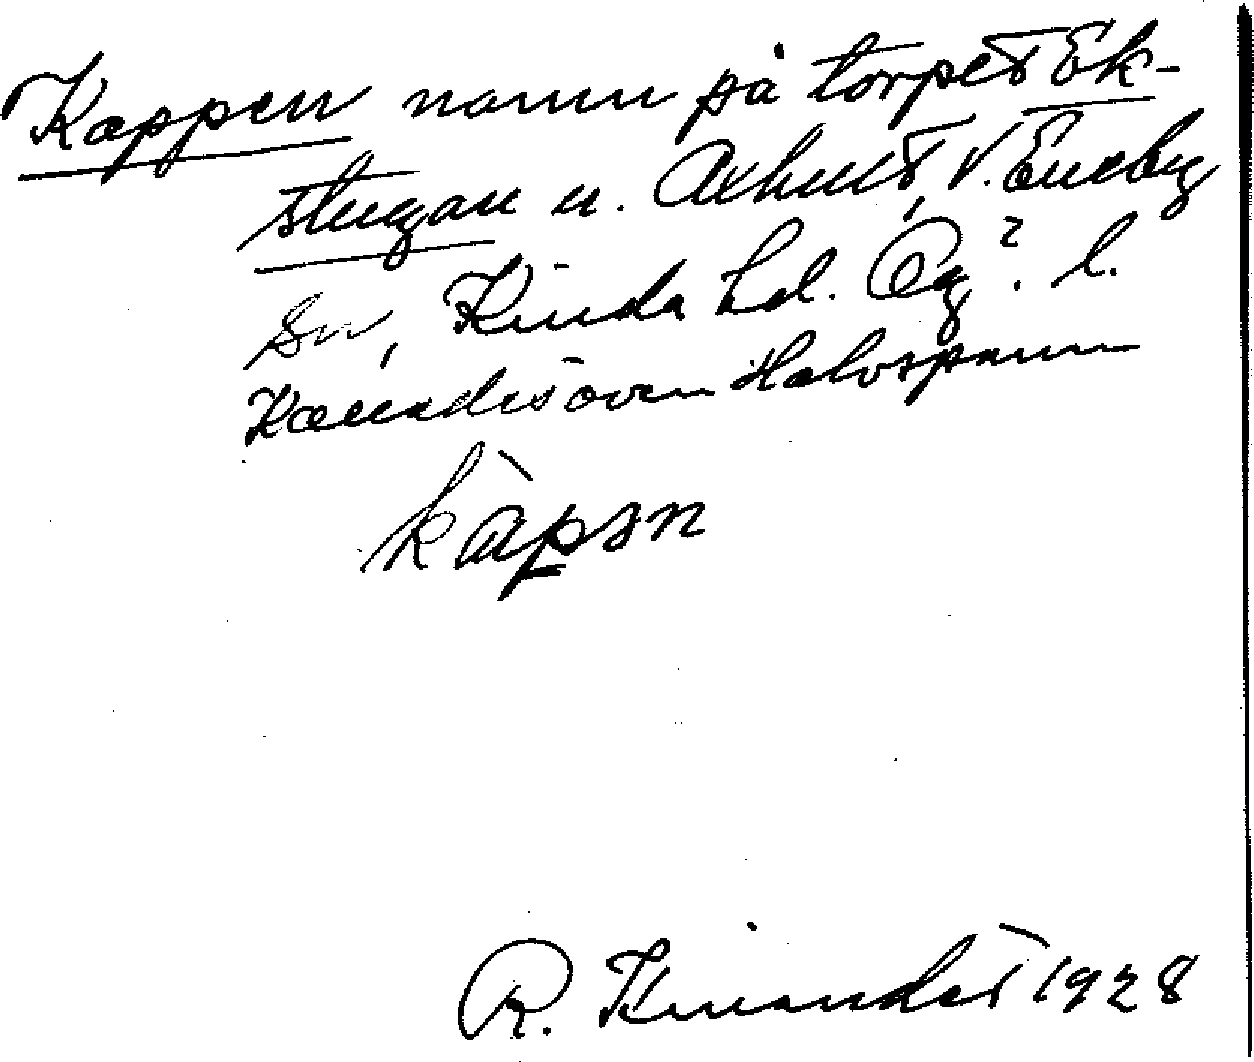 Kappen namn på torpet Ek-
stugan u. Axhult, V. Eneby
sn, Kinda hd. Ög. l.
Halvspann
kàpən
R. Kinander 1928